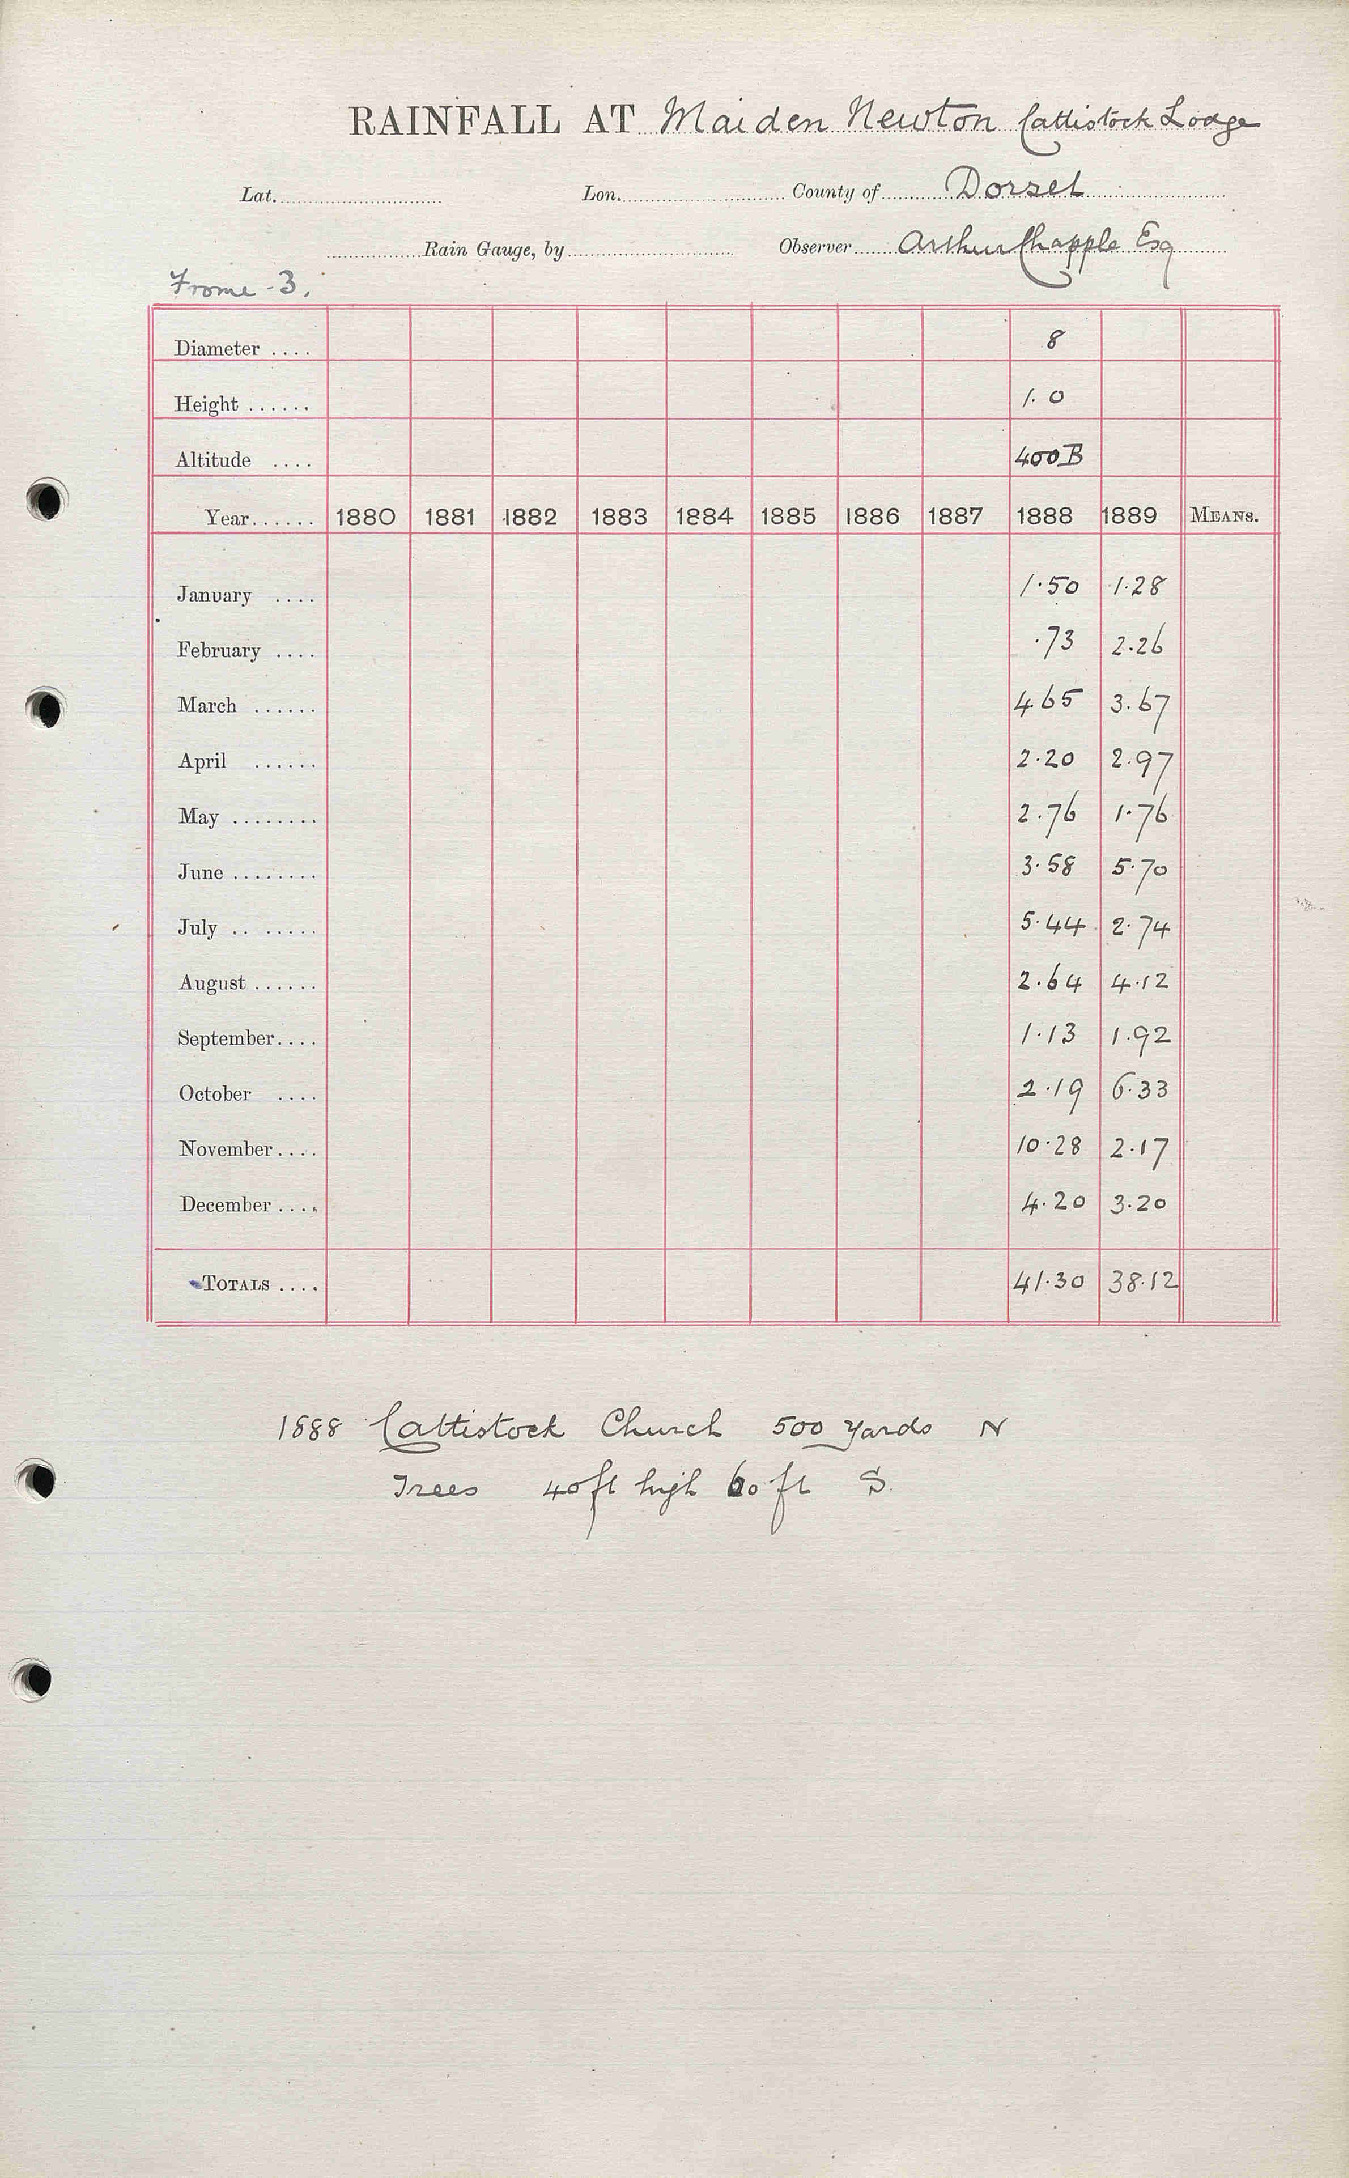 RAINFALL AT Maiden Newton Cattistock Lodge
Lat. Lon. County of Dorset
Rain Gauge, by Observer Arthur Chapple Esq
Frome - 3.
Diameter .... 8
Height ...... 1.0
Altitude .... 400 B
Year...... 1880 1881 1882 1883 1884 1885 1886 1887 1888 1889 MEANS.
January .... 1.50 1.28
February .... .73 2.26
March ...... 4.65 3.67
April ...... 2.20 2.97
May ........ 2.76 1.76
June ........ 3.58 5.70
July .. ..... 5.44 2.74
August ...... 2.64 4.12
September.... 1.13 1.92
October .... 2.19 6.33
November.... 10.28 2.17
December .... 4.20 3.20
TOTALS .... 41.30 38.12
1888 Cattistock Church 500 yards N
Trees 40 ft high 60 ft S.